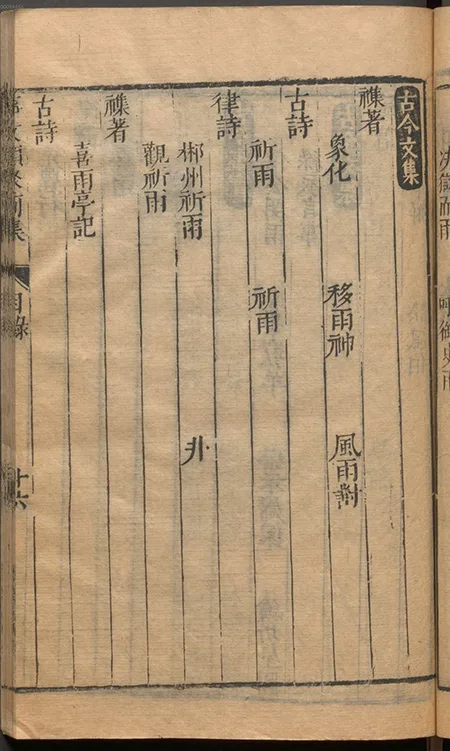 決獄而雨
古今文集
襍著
象化 移雨神 風雨對
古詩
祈雨 祈雨
律詩
郴州祈雨
觀祈雨
襍著
喜雨亭記
古詩
目錄
十六